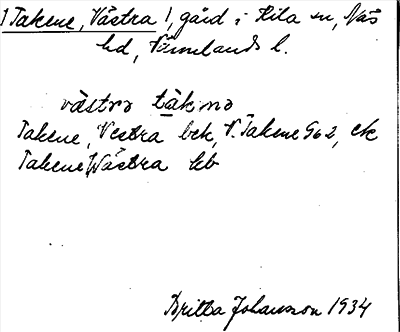 1 Takene, Västra 1, gård i Kila sn, Näs
hd, Värmlands l.
västra tàkna
Takene, Vestra bek, V. Takene G62, ek
Takene, Västra kb
Britta Johansson 1934